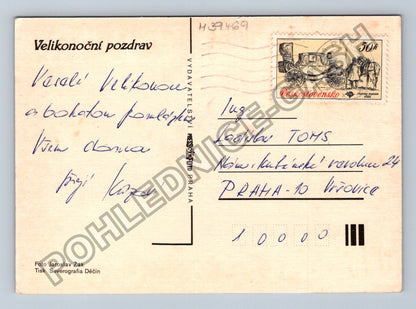 H39469
Velikonoční pozdrav
Veselé Velikonoce
a bohatou pomlázku
Všem doma
přejí
VYDAVATELSTVÍ
PRAHA
50 h
Československo
Ing.
Ladislav TOMS
Nám. Kubánské revoluce 24
PRAHA-10 Vršovice
10000
Foto Jaroslav Žák
Tisk Severografia Děčín
POHLEDNICE-CASH